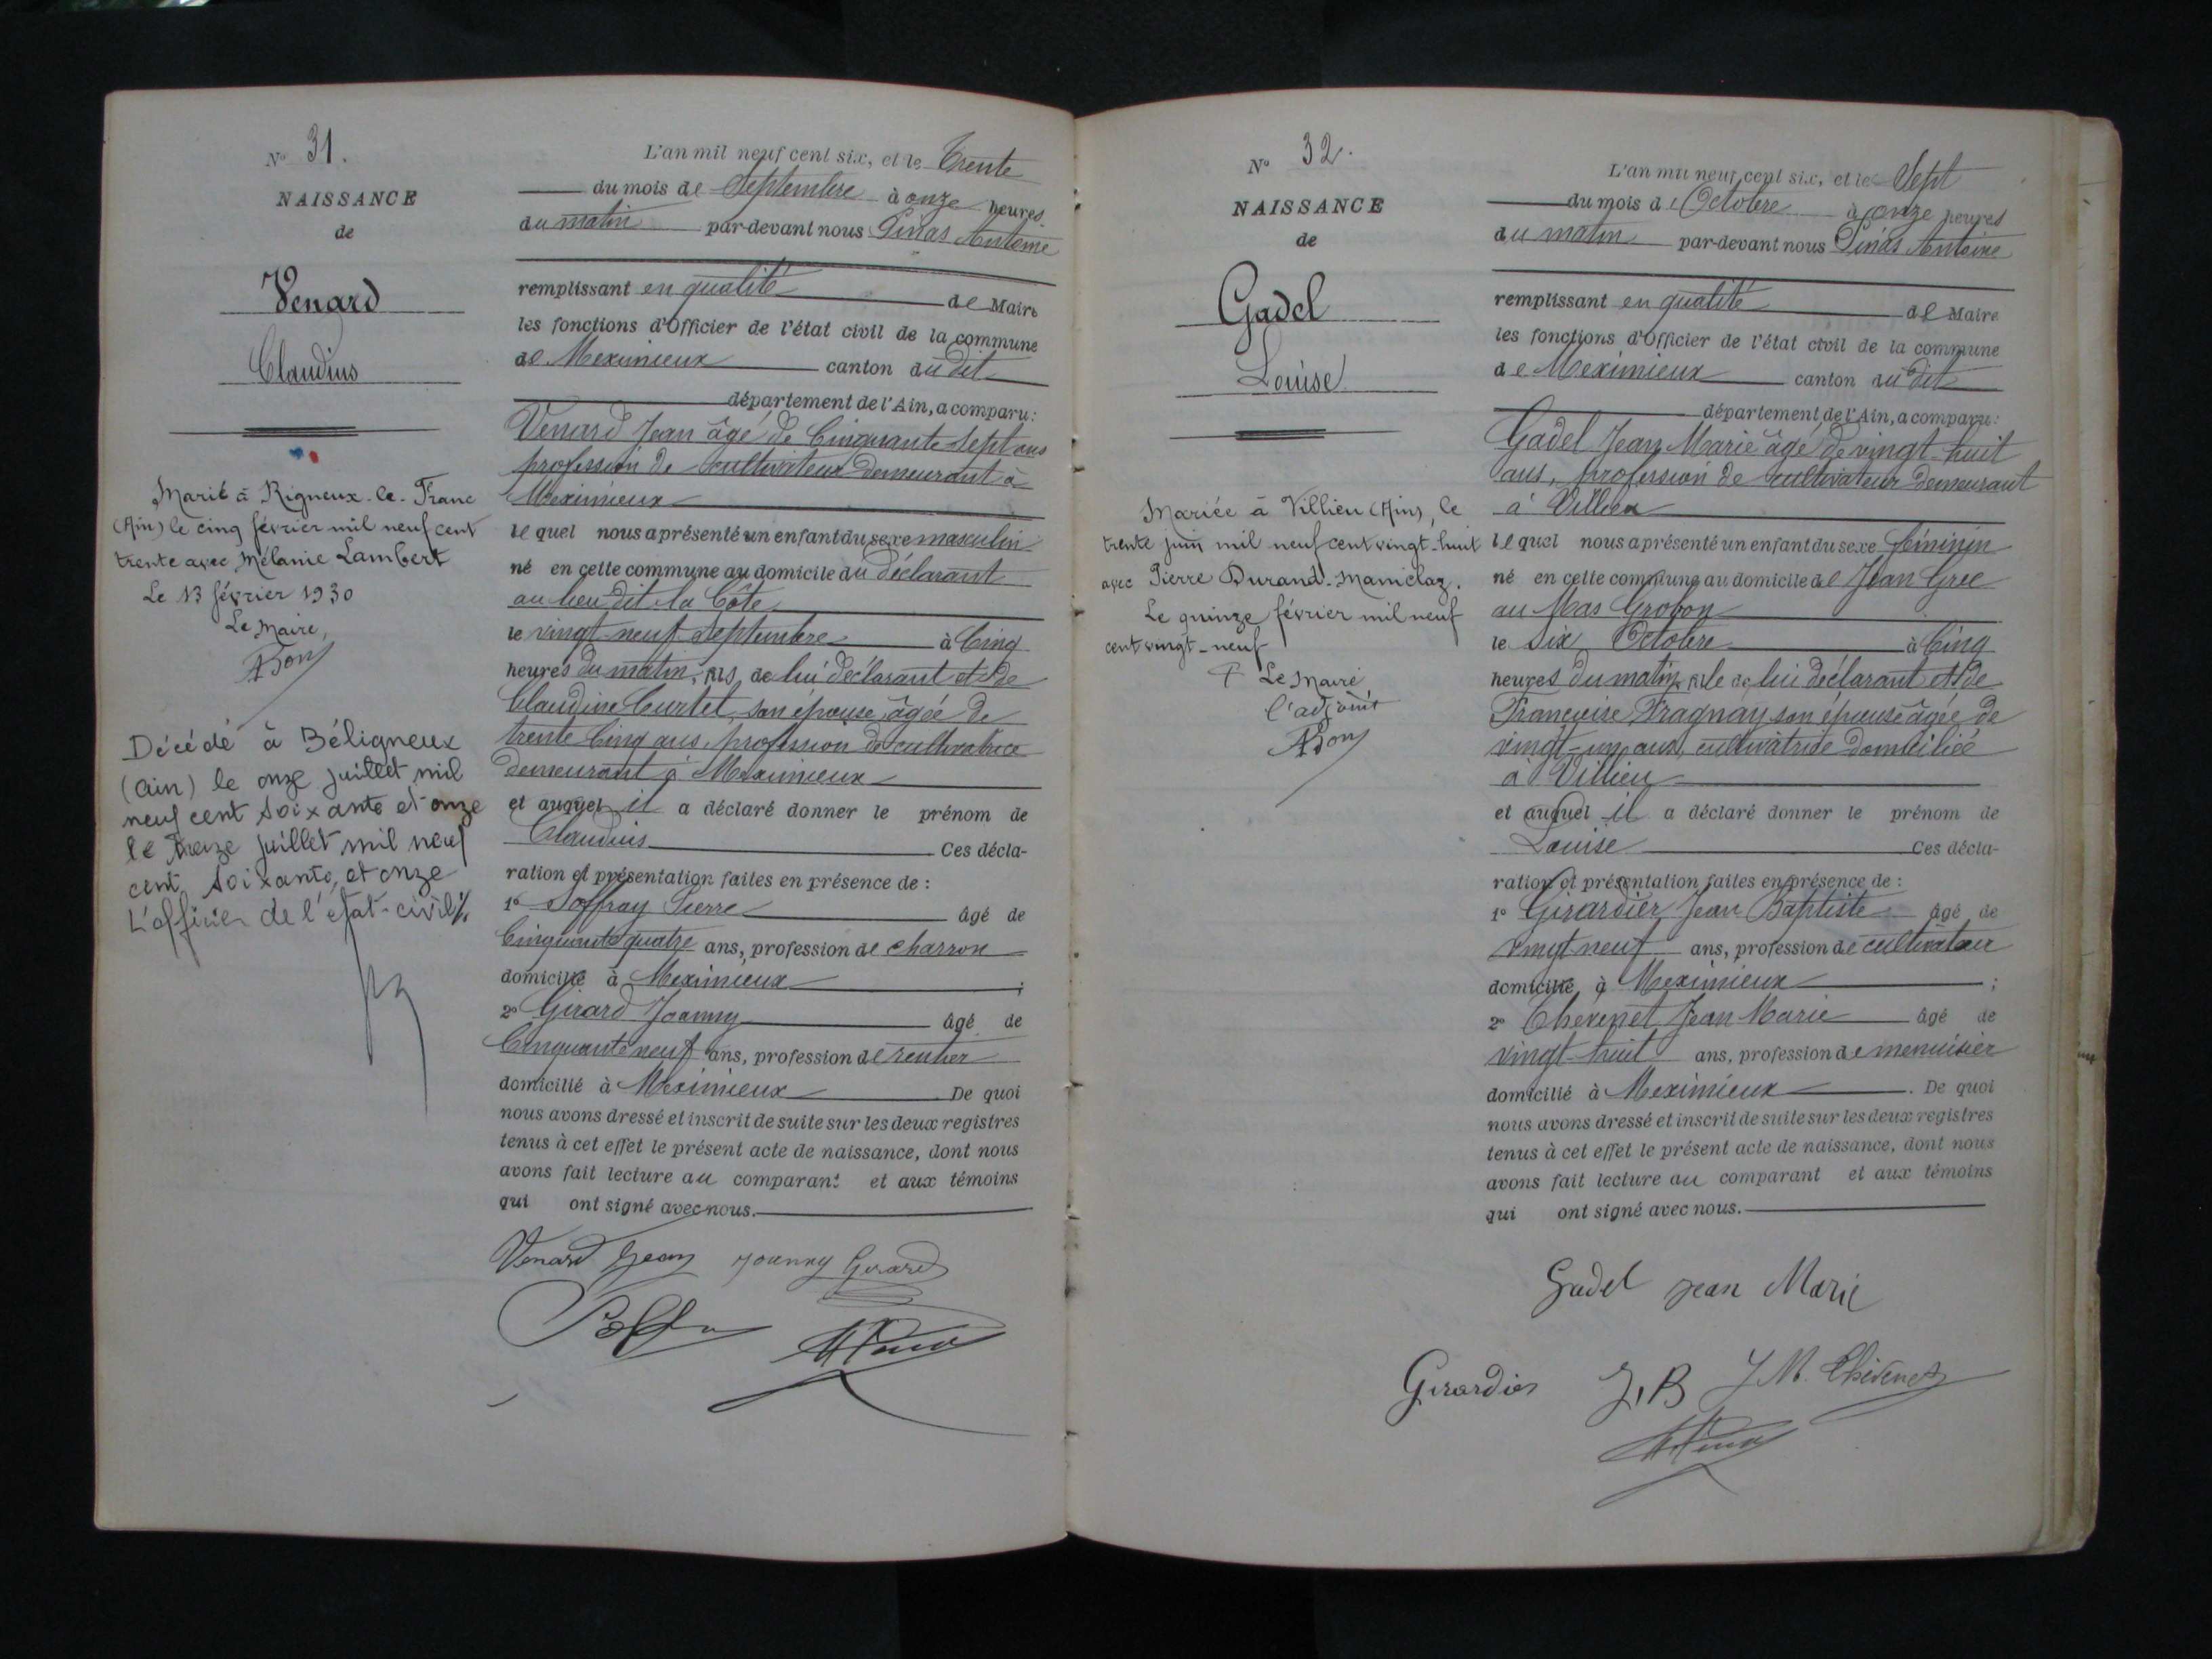 N° 31.
NAISSANCE
de
Venard
Claudius
Marié à Rigneux-le-Franc
(Ain) le cinq février mil neuf cent
trente avec Mélanie Lambert
Le 13 février 1930
Le Maire,
Décédé à Béligneux
(Ain) le onze juillet mil
neuf cent soixante et onze
le treize juillet mil neuf
cent soixante et onze
L'officier de l'état-civil
L'an mil neuf cent six, et le Trente
du mois de Septembre à onze heures
du matin par-devant nous Pinas Antoine
remplissant en qualité de Maire
les fonctions d'Officier de l'état civil de la commune
de Meximieux canton du dit
département de l'Ain, a comparu:
Venard Jean âgé de Cinquante sept ans
profession de cultivateur demeurant à
Meximieux
lequel nous a présenté un enfant du sexe masculin
né en cette commune au domicile du déclarant
au lieu dit la Côte
le vingt-neuf Septembre à Cinq
heures du matin, fils de lui déclarant et de
Claudine Curtet, son épouse, âgée de
trente Cinq ans, profession de cultivatrice
demeurant à Meximieux
et auquel il a déclaré donner le prénom de
Claudius Ces décla-
ration et présentation failes en présence de :
1° Soffray Pierre âgé de
Cinquante quatre ans, profession de charron
domicilié à Meximieux ;
2° Girard Joanny âgé de
Cinquante neuf ans, profession de rentier
domicilié à Meximieux De quoi
nous avons dressé et inscrit de suite sur les deux registres
tenus à cet effet le présent acte de naissance, dont nous
avons fait lecture au comparant et aux témoins
qui ont signé avec nous.
Venard Jean Joanny Girard
N° 32.
NAISSANCE
de
Gadel
Louise
Mariée à Villieu (Ain), le
trente juin mil neuf cent vingt-huit
avec Pierre Durand-Maniclaz.
Le quinze février mil neuf
cent vingt-neuf
P Le Maire
l'adjoint
L'an mil neuf cent six, et le Sept
du mois d'Octobre à onze heures
du matin par-devant nous Pinas Antoine
remplissant en qualité de Maire
les fonctions d'Officier de l'état civil de la commune
de Meximieux canton du dit
département de l'Ain, a comparu:
Gadel Jean Marie âgé de vingt-huit
ans, profession de cultivateur demeurant
à Villieu
lequel nous a présenté un enfant du sexe féminin
né en cette commune au domicile de Jean
au Mas Grobon
le Six Octobre à Cinq
heures du matin fille de lui déclarant et de
Françoise Fragnay son épouse âgée de
vingt-un ans, cultivatrice domiciliée
à Villieu
et auquel il a déclaré donner le prénom de
Louise Ces décla-
ration et présentation failes en présence de :
1° Girardier Jean Baptiste âgé de
vingt neuf ans, profession de cultivateur
domicilié à Meximieux ;
2° Chevenet Jean Marie âgé de
vingt-huit ans, profession de menuisier
domicilié à Meximieux . De quoi
nous avons dressé et inscrit de suite sur les deux registres
tenus à cet effet le présent acte de naissance, dont nous
avons fait lecture au comparant et aux témoins
qui ont signé avec nous.
Gadel Jean Marie
Girardier J, B J M. Chevenet